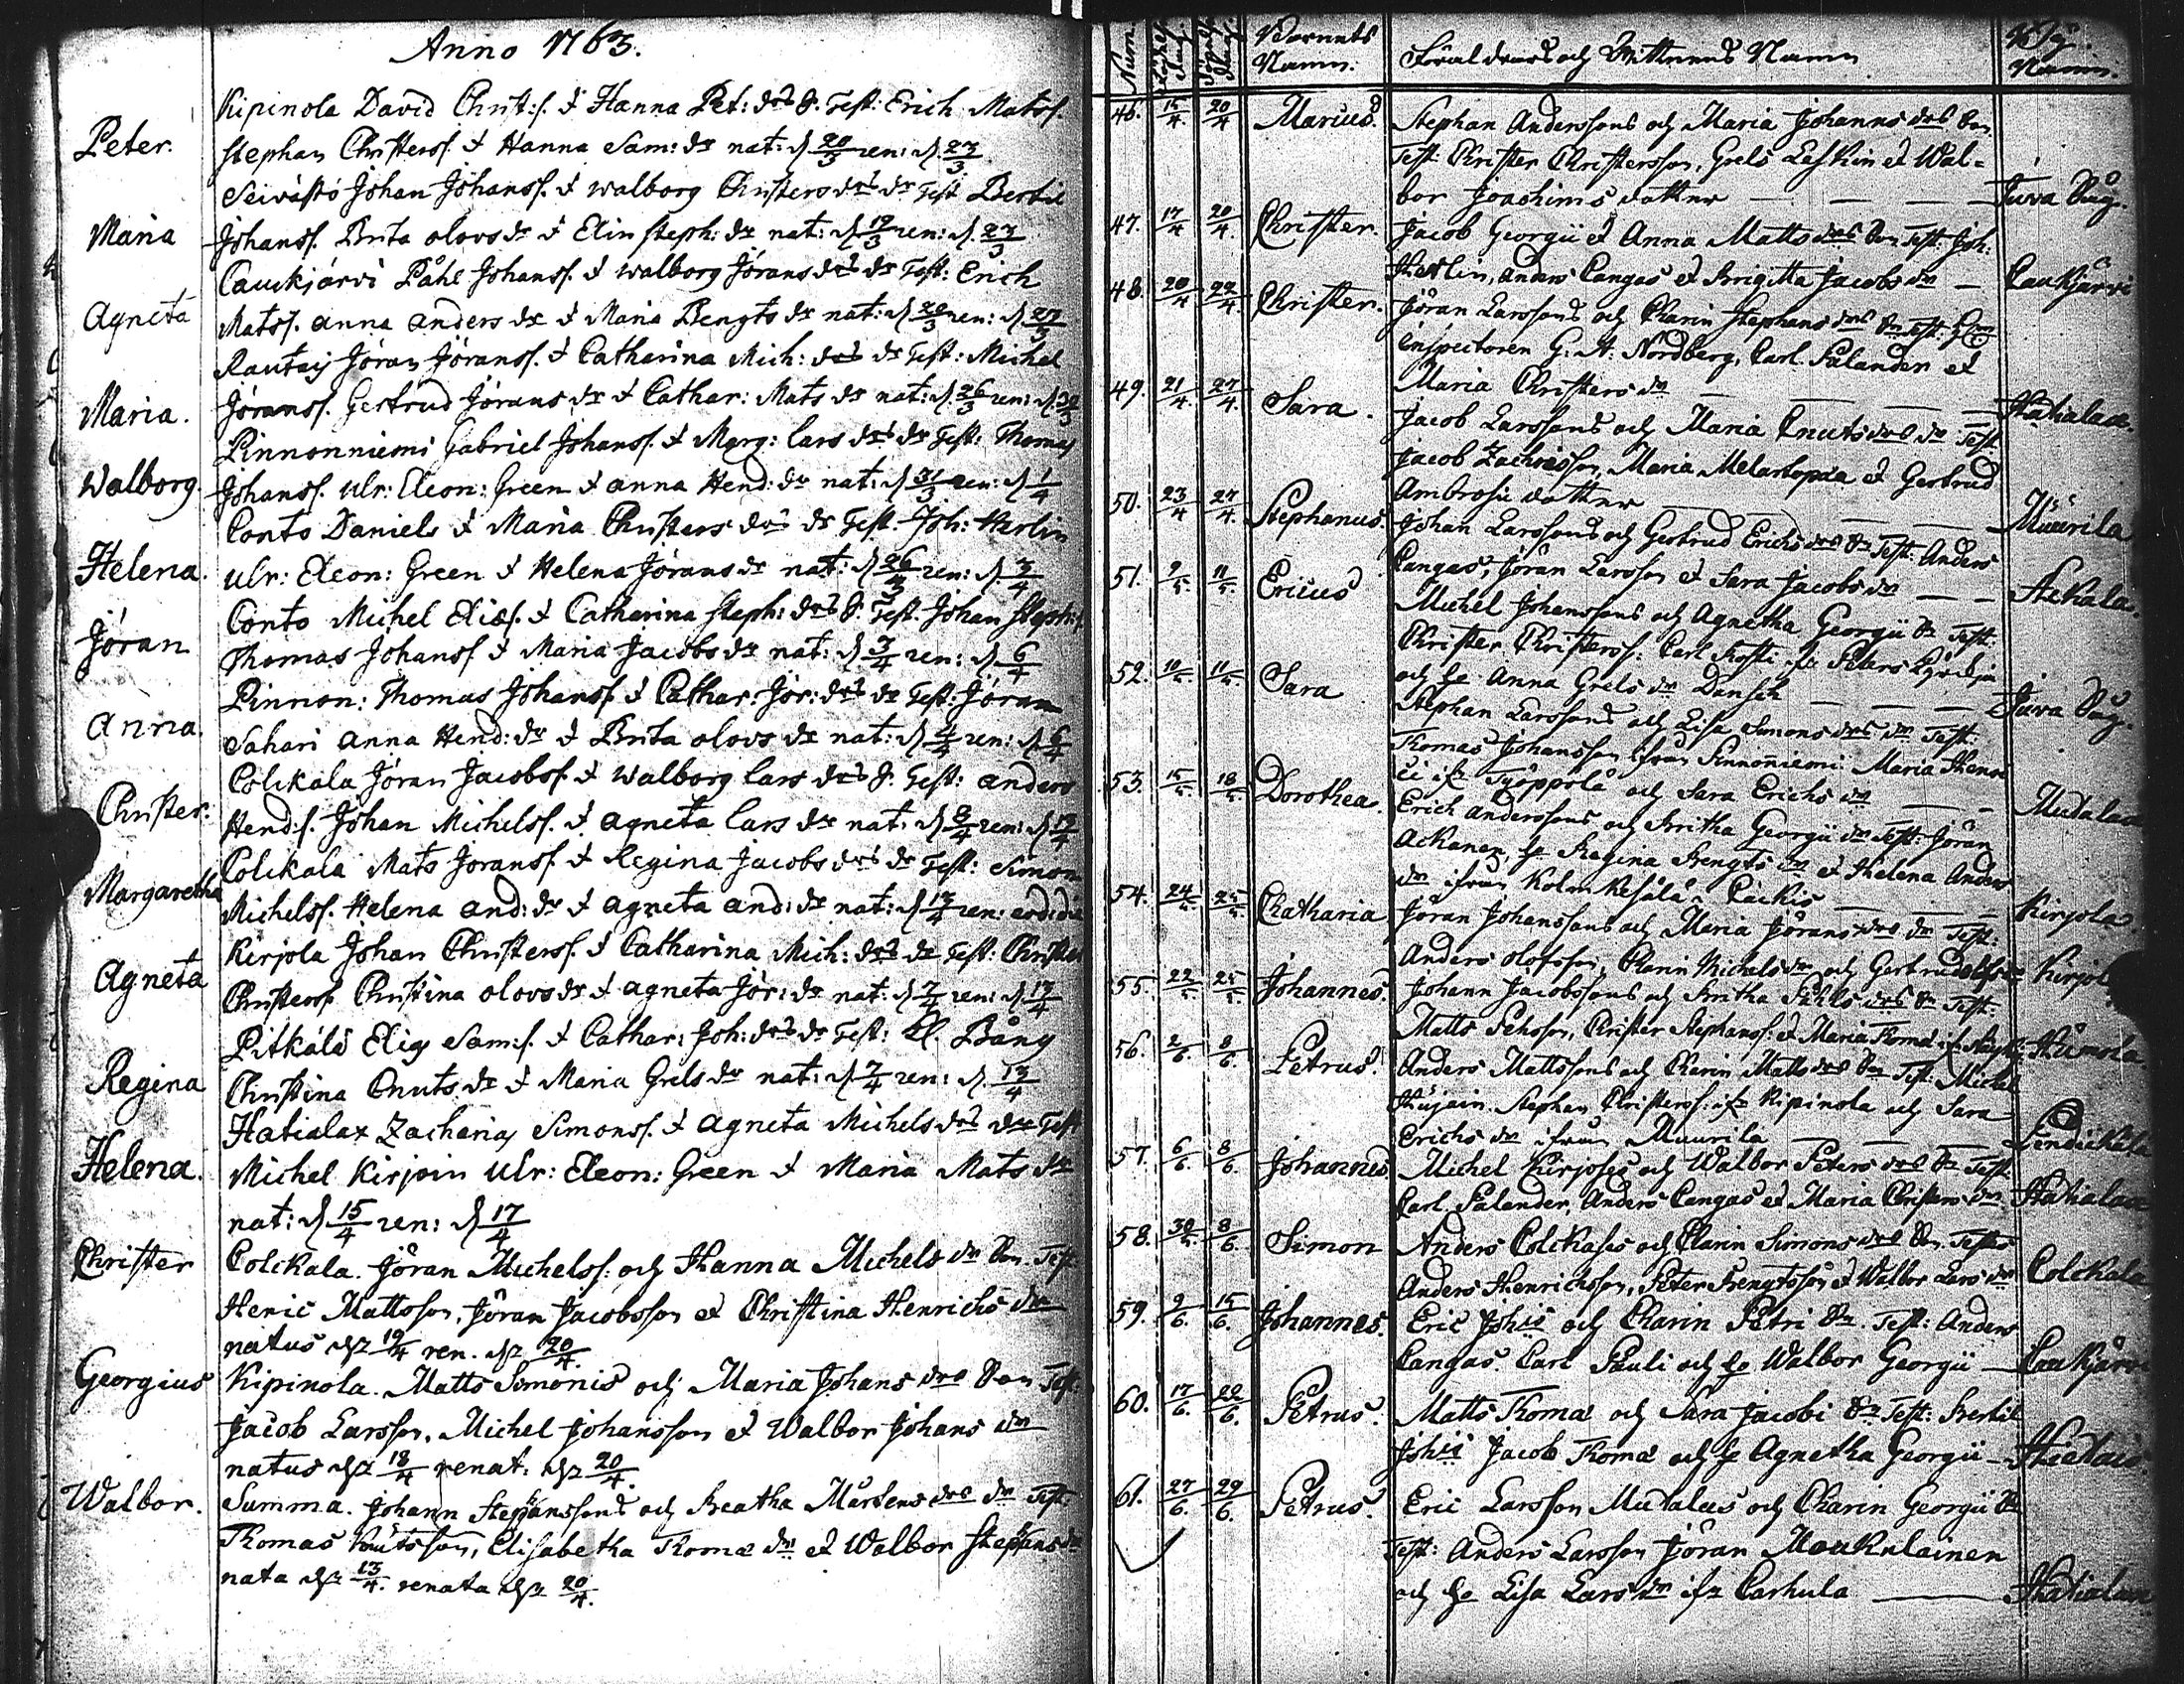 Anno 1763.
Kipinola David Christ:s. & Hanna Pet: drs S. Test: Erich Matss.
Peter. Stephan Christerss. & Hanna Sam: dr nat: d 20/3 ren: d 27/3
Seivästö Johan Johanss. & Walborg Christers drs dr Test Bertil
Maria Johanss. Brita olovs dr & Elin Steph: dr nat: d 19/3 ren: d. 27/3
Caukjärvi Påhl Johanss. & Walborg Jörans drs dr Test: Erich
Agneta Matss. Anna Anders dr & Maria Bengts dr nat: d 20/3 ren: d 27/3
Jöran Jöranss. & Catharina Mich: drs dr Test: Michel
Maria. Jöranss. Gertrud Jörans dr & Cathar: Mats dr nat: d. 26/3 ren: d. 30/3
Pinnonniemi Gabriel Johanss. & Marg: Lars drs dr Test: Thomas
Walborg. Johanss. Ulr: Eleon: Green & Anna Hend: dr nat: d 31/3 ren: d 1/4
Conto Daniels & Maria Christers drs dr Test. Joh: Herlin
Helena. Ulr: Eleon: Green & Helena Jörans dr nat: d 26/3 ren: d 3/4
Conto Michel Elias. & Catharina Steph: drs S. Test. Johan Steph:s.
Jöran Thomas Johanss & Maria Jacobs dr nat: d 3/4 ren: d 6/4
Pinnon: Thomas Johanss. & Cathar: Jör: drs dr Test: Jöran
Anna. Sahari Anna Hend: dr & Brita olovs dr nat: d 4/4 ren: d 6/4
Colckala Jöran Jacobss. & Walborg Lars drs S. Test: Anders
Christer. Hend:s. Johan Michelss. & Agneta Lars dr nat: d 8/4 ren: d 13/4
Colckala Mats Joranss. & Regina Jacobs drs dr Test: Simon
Margaretha Michelss. Helena And: dr & Agneta And: dr nat: d 13/4 ren: eod: die
Kirjola Johan Christerss. & Catharina Mich: drs dr Test: Christer
Agneta Christerss Christina olovs dr & Agneta Jör: dr nat: d 7/4 ren: d 17/4
Pitkälä Elias Sam:s. & Cathar: Joh: drs dr Test: Cl. Bång
Regina Christina Cnuts dr & Maria Grels dr nat: d. 7/4 ren: d. 13/4
Hatialax Zacharias Simonss. & Agneta Michels drs dr Test
Helena. Michel Kirjoin Ulr: Eleon: Green & Maria Mats dr
nat: d 15/4 ren: d 17/4
Christer Colckala. Jöran Michelss: och Hanna Michels dr Son. Test
Henic Mattsson, Jöran Jacobsson et Christina Henrichs dr
natus d 19/4 ren. d 20/4.
Georgius Kipinola. Matts Simonis och Maria Johans drs Son Test:
Jacob Larsson, Michel Johansson et Walbor Johans dr
natus d 18/4 renat. d 20/4.
Walbor. Summa. Johann Stephanssons och Beatha Mårtens drs dr Test:
Thomas Knutsson, Elisabetha Thomæ dr et Walbor Stephans dr
nata d 13/4. renata d 20/4.
Num. Barnets Namn. Föräldrars och Wittnens Namn By. Namn.
46. 15/4. 20/4 Marius. Stephan Anderssons och Maria Johanns drs Son
Test: Christer Christersson, Grels Leskin et Wal=
bor Joachims dotter — — — Juva By.
47. 17/4 20/4. Christer. Jacob Georgii et Anna Matts drs Son Test: Joh:
Herlin, Anders Cangas et Brigitta Jacobs dr — Caukjärvi
48. 20/4 22/4. Christer. Jöran Larssons och Charin Stephans drs Sn Test: Hr
Inspectoren G. A. Nordberg, Carl Salander et
Maria Christers dr — — — Hatialax.
49. 21/4. 27/4. Sara. Jacob Larssons och Maria Cnuts drs dr Test
Jacob Zachrisson, Maria Melartopæa et Gertrud
Ambrosii dotter — — — Muurila
50. 23/4 27/4. Stephanus. Johan Larssons och Gertrud Erichs drs Sn Test: Anders
Cangas, Jöran Larsson et Sara Jacobs dr — — Hekala.
51. 9/5. 11/5. Ericus Michel Johanssons och Agnetha Georgii Sn Test:
Christer Christerss: Carl Kosti
och Anna Grels dr Dansch — — — Juva By.
52. 10/5. 11/5. Sara Stephan Larssons och Lisa Simons drs dr Test:
Thomas Johansson ifrån Pinnoniemi Maria Hen
Työppölä och Sara Erichs dr — — Mudalax
53. 15/5. 18/5. Dorothea. Erich Anderssons och Britha Georgii dr Test: Jöran
Ackanen, Regina Bengts dr et Helena Anders
dr ifrån Kolmkesälä — — Kirjola.
54. 24/5. 25/5. Chatharia Jöran Johanssons och Maria Jörans drs dr Test:
Anders Olofsson, Charin Michels dr och Gertrud Kirjola
55. 22/5. 25/5. Johannes. Johann Jacobssons och Britha Påhls drs Sn Test:
Matts Pehsson, Christer Stephanss: et Maria Thomæ Humola
56. 2/6. 8/6. Petrus. Anders Mattssons och Charin Matts drs Son Test: Michel
Hujain. Stephan Christerss: ifr Kipinola och Sara
Erichs dr ifrån Muurila — —
57. 6/6. 8/6. Johannes Michel Kirjoses och Walbor Peters drs Sn Test
Carl Salander, Anders Cangas et Maria Christers dr Hatialax
58. 30/5. 8/6. Simon Anders Colckases och Charin Simons drs Son. Testes
Anders Henrichsson, Peter Bengtsson et Walbor Lars dr Colckala
59. 9/6. 15/6. Johannes. Eric Johis och Charin Petri Sn. Test: Anders
Cangas Carl Pauli och Walbor Georgii — Caukjärvi
60. 17/6. 22/6. Petrus. Matts Thomæ och Sara Jacobi Sn Test: Bertil
Johis Jacob Thomæ och Agnetha Georgii —
61. 27/6. 29/6. Petrus. Eric Larsson Mudalaus och Charin Georgii Sn
Test: Anders Larsson Jöran Maukulainen
och Lisa Lars dr ifr Carhula — Hatialax